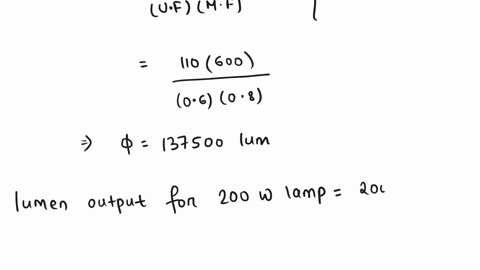 (U.F) (M.F)
= 110 (600)
(0.6) (0.8)
⇒ ϕ = 137500 lum
lumen output for 200 W lamp = 200